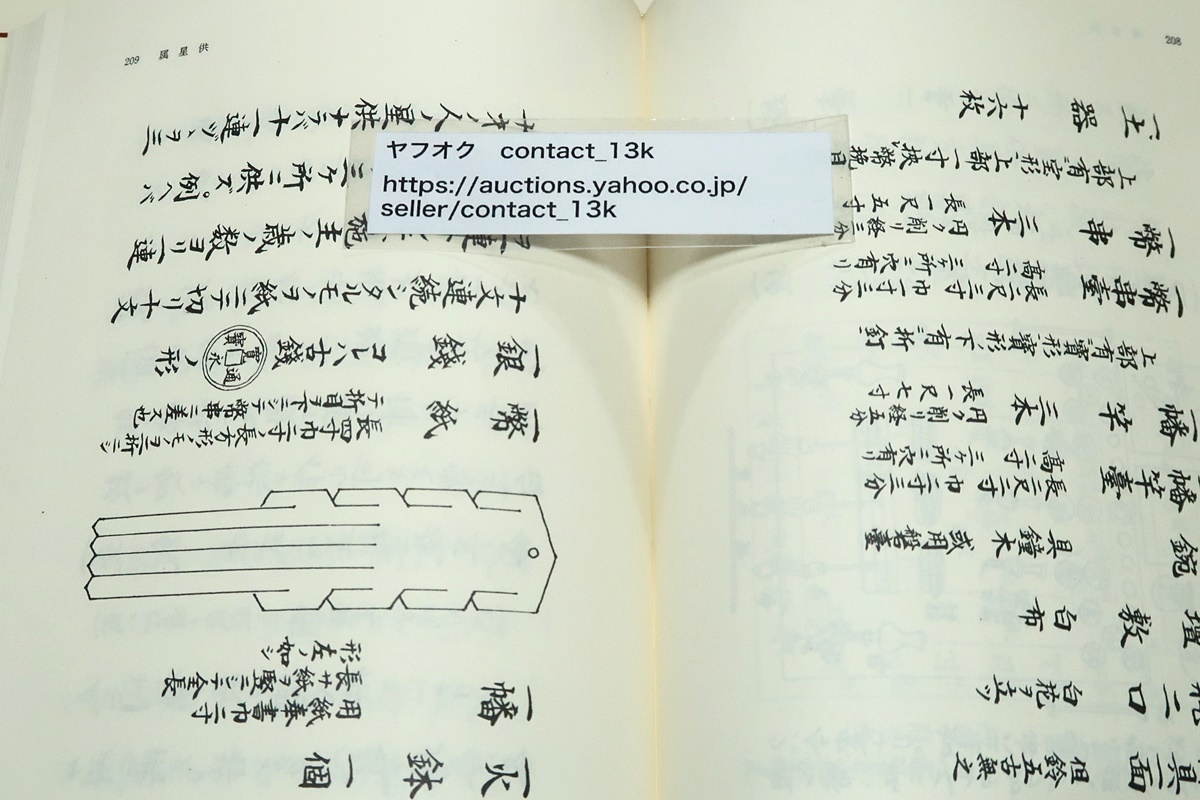 208
具一面 但鈴五古無之
二口 白花ヲ立ツ
壇敷 白布
鐘木 或用磬臺
一幡竿臺 長二尺三寸巾二寸三分
高二寸三ヶ所ニ穴有リ
一幡竿三本 円ク削リ経五分
長一尺七寸
上部有寶形下有折釘
一幣串臺 長二尺三寸巾一寸三分
高二寸三ヶ所ニ穴有リ
一幣串三本 円ク削リ経三分
長一尺五寸
上部有室形上部一寸挾幣挽目
一土器十六枚
209 属星供
一火鉢一個
一幡 用紙奉書巾二寸
長サ紙ヲ竪ニシテ全長
形左ノ如シ
一幣紙 長四寸巾二寸ノ長方形ノモノヲ二折シ
テ折目ヲ下ニシテ幣串ニ差ス也
一銀錢 コレハ古錢 寛永通寶 ノ形
十文連続シタルモノヲ紙ニテ切リ十文
施主ノ歳ノ数ヨリ一連
三ケ所ニ供ズ。例ヘバ
才ノ人ノ星供ナラバ十一連ヅヽヲ三
ヤフオク contact_13k
https://auctions.yahoo.co.jp/
seller/contact_13k